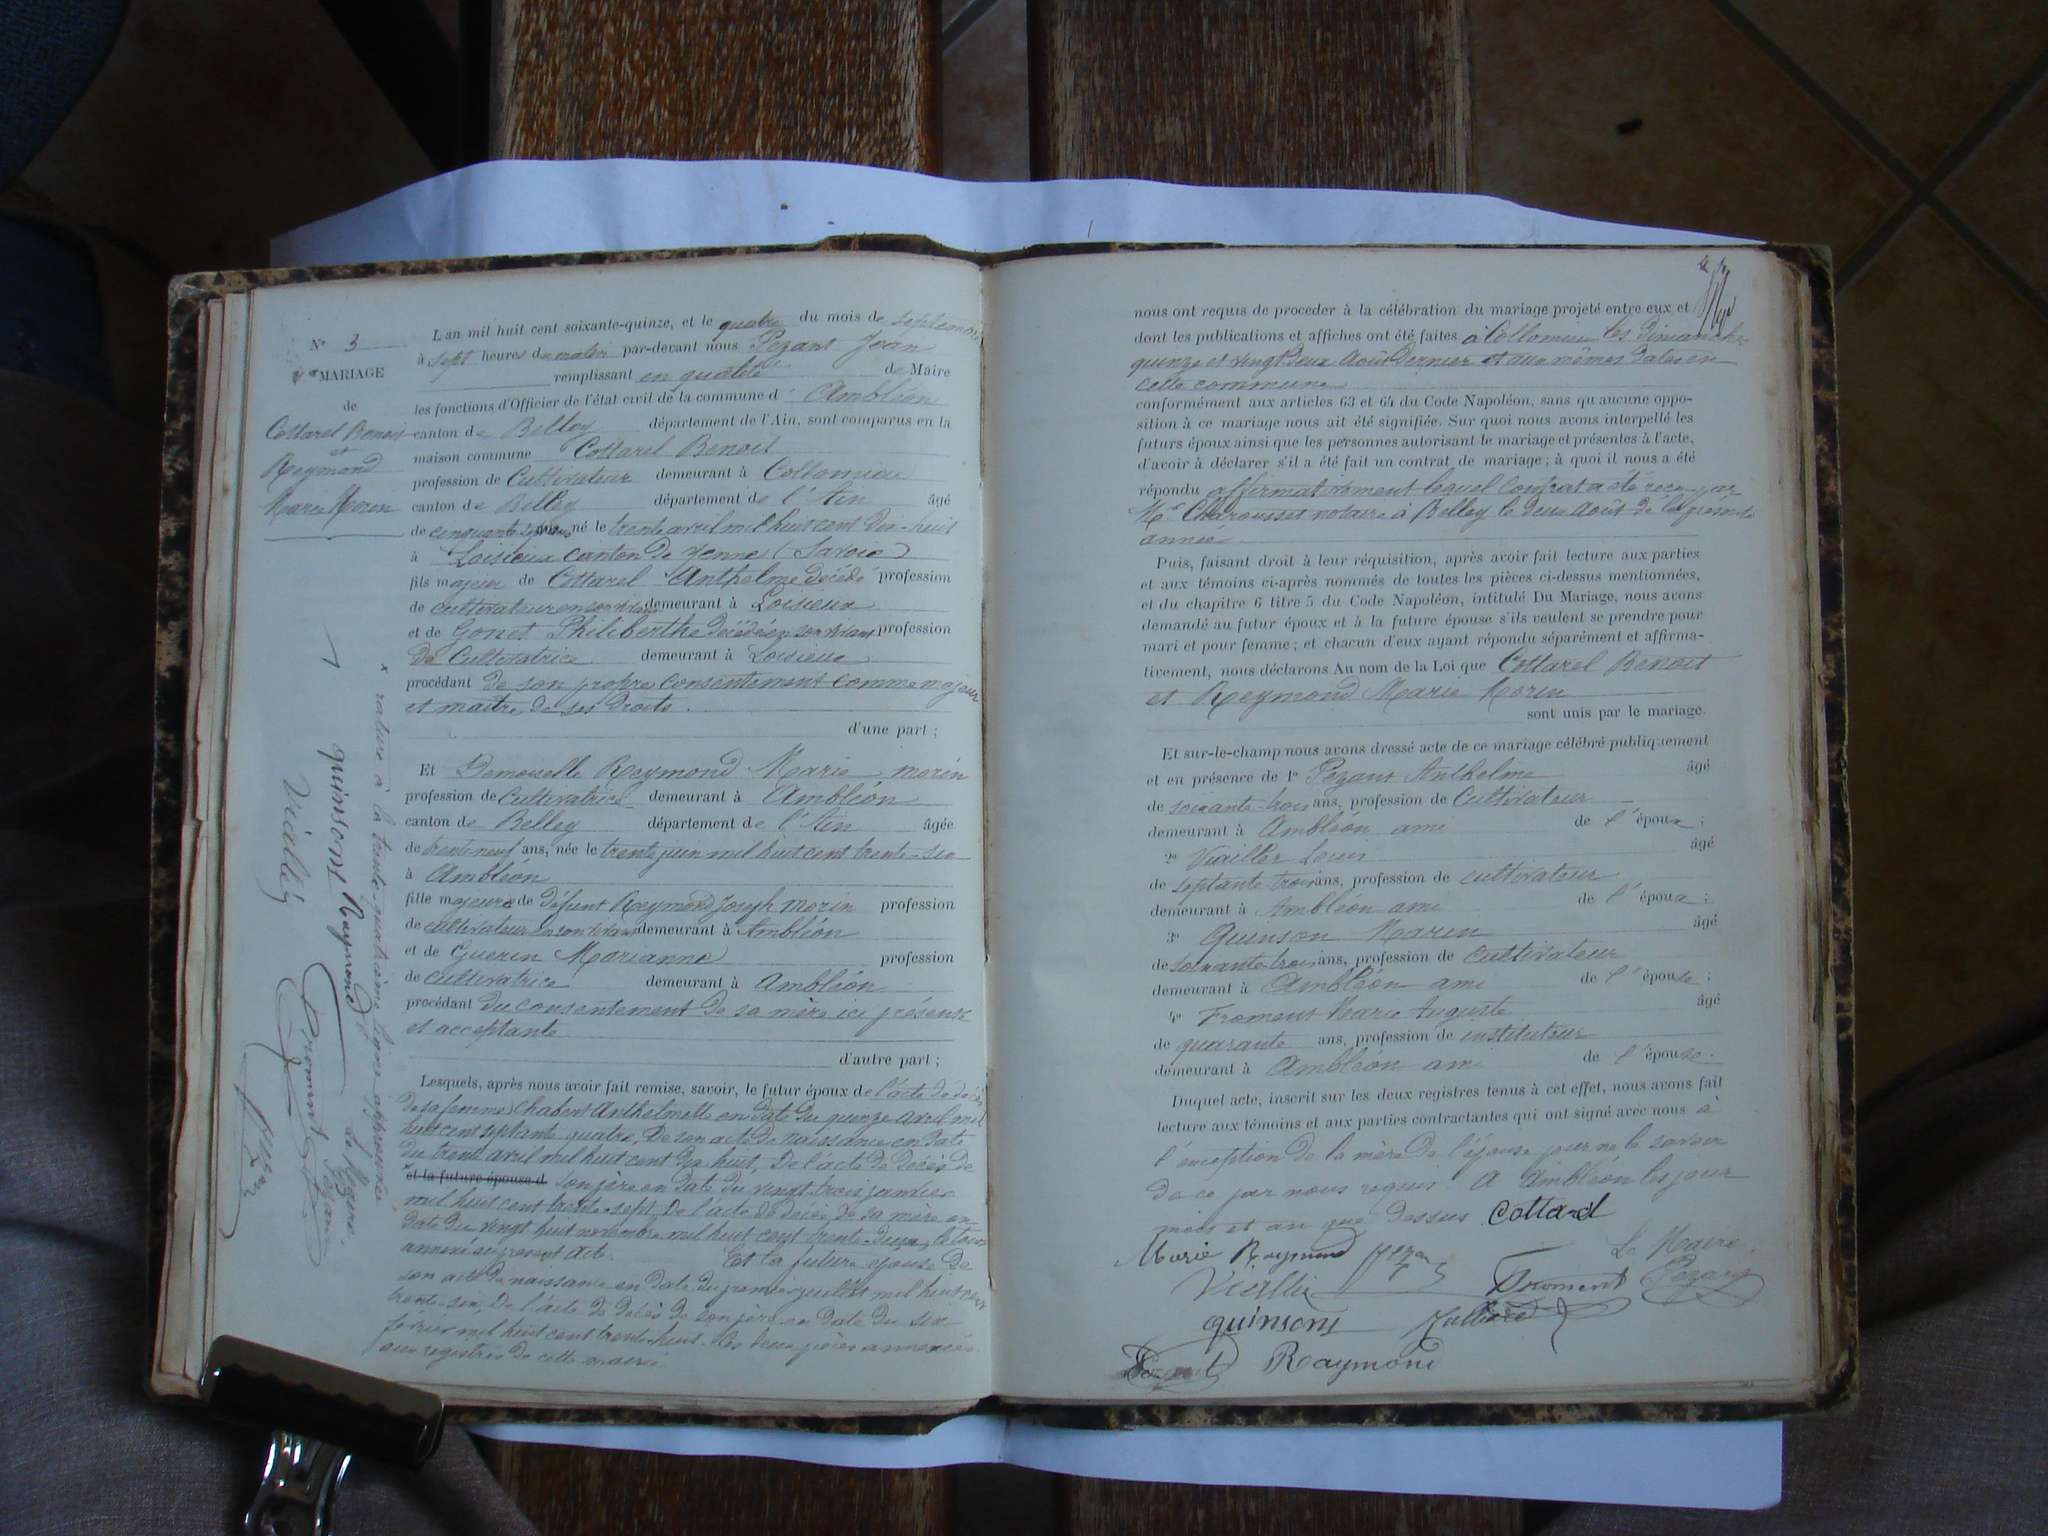 N° 3
MARIAGE
de
Cottarel Benoit
et
Reymond
Marie Morin
L'an mil huit cent soixante-quinze, et le quatre du mois de septembre
à sept heures du matin par-devant nous Pezant Jean
remplissant en qualité de Maire
les fonctions d'Officier de l'état civil de la commune d' Ambléon
canton de Belley département de l'Ain, sont comparus en la
maison commune Cottarel Benoit
profession de Cultivateur demeurant à Collomieu
canton de Belley département de l'Ain âgé
de cinquante sept ans, né le trente avril mil huit cent dix-huit
à Loisieux canton de Yenne (Savoie)
fils majeur de Cottarel Anthelme décédé profession
de cultivateur en son vivant demeurant à Loisieux
et de Gonet Philiberthe décédée en son vivant profession
de Cultivatrice demeurant à Loisieux
procédant de son propre consentement comme majeur
et maître de ses droits.
d'une part ;
Et Demoiselle Reymond Marie Morin
profession de Cultivatrice demeurant à Ambléon
canton de Belley département de l'Ain âgée
de trente-neuf ans, née le trente juin mil huit cent trente-six
à Ambléon
fille majeure de défunt Reymond Joseph Morin profession
de cultivateur en son vivant demeurant à Ambléon
et de Guerin Marianne profession
de cultivatrice demeurant à Ambléon
procédant du consentement de sa mère ici présente
et acceptante
d'autre part ;
Lesquels, après nous avoir fait remise, savoir, le futur époux de l'acte de décès
de sa femme Chabert Anthelmette en date du quinze avril mil
huit cent septante quatre, De son acte de naissance en date
du trente avril mil huit cent dix huit, De l'acte de décès de
et la future épouse d son père en date du vingt trois janvier
mil huit cent trente-sept, De l'acte de décès de sa mère en
date du vingt huit novembre mil huit cent trente-deux, le tout
annexé au présent acte. Et la future épouse de
son acte de naissance en date du premier juillet mil huit cent
trente-six, De l'acte de décès de son père en date du six
février mil huit cent trente-huit. Les deux pièces annexées
aux registres de cette mairie
x rature à la trente-quatrième ligne approuvée
Le Maire
Pezant
quinsons Raymond
Froment
Viallé
nous ont requis de proceder à la célébration du mariage projeté entre eux et
dont les publications et affiches ont été faites à Collomieu les Dimanches
quinze et vingt deux Août dernier et aux mêmes dates en
cette commune
conformément aux articles 63 et 64 du Code Napoléon, sans qu'aucune oppo-
sition à ce mariage nous ait été signifiée. Sur quoi nous avons interpellé les
futurs époux ainsi que les personnes autorisant le mariage et présentes à l'acte,
d'avoir à déclarer s'il a été fait un contrat de mariage ; à quoi il nous a été
répondu affirmativement lequel Contrat a été reçu par
Me Charousset notaire à Belley le deux Août de la présente
année
Puis, faisant droit à leur réquisition, après avoir fait lecture aux parties
et aux témoins ci-après nommés de toutes les pièces ci-dessus mentionnées,
et du chapitre 6 titre 5 du Code Napoléon, intitulé Du Mariage, nous avons
demandé au futur époux et à la future épouse s'ils veulent se prendre pour
mari et pour femme ; et chacun d'eux ayant répondu séparément et affirma-
tivement, nous déclarons Au nom de la Loi que Cottarel Benoit
et Reymond Marie Morin
sont unis par le mariage.
Et sur-le-champ nous avons dressé acte de ce mariage célébré publiquement
et en présence de 1° Pezant Anthelme âgé
de soixante-trois ans, profession de Cultivateur
demeurant à Ambléon ami de l'époux ;
2° Viaillier Louis âgé
de septante trois ans, profession de cultivateur
demeurant à Ambléon ami de l'époux ;
3° Quinson Marin âgé
de soixante-trois ans, profession de cultivateur
demeurant à Ambléon ami de l'épouse ;
4° Froment Marie Auguste âgé
de quarante ans, profession de instituteur
demeurant à Ambléon ami de l'épouse.
Duquel acte, inscrit sur les deux registres tenus à cet effet, nous avons fait
lecture aux témoins et aux parties contractantes qui ont signé avec nous à
l'exception de la mère de l'épouse pour ne le savoir
de ce par nous requis. A Ambléon les jour
mois et an que dessus Cottarel
Marie Raymond
Le Maire
Viallie
Froment Pezant
quinsons
Raymond